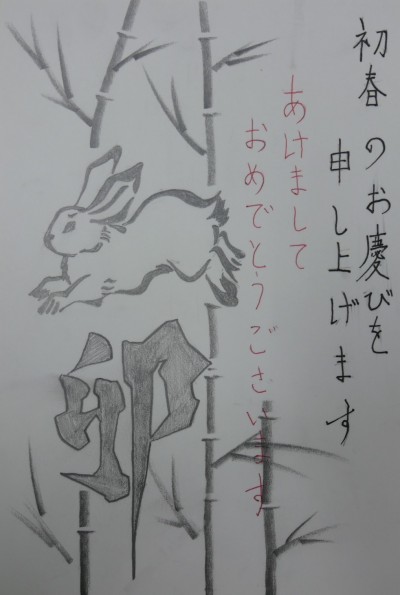 初春のお慶びを
申し上げます
あけまして
おめでとうございます
卯